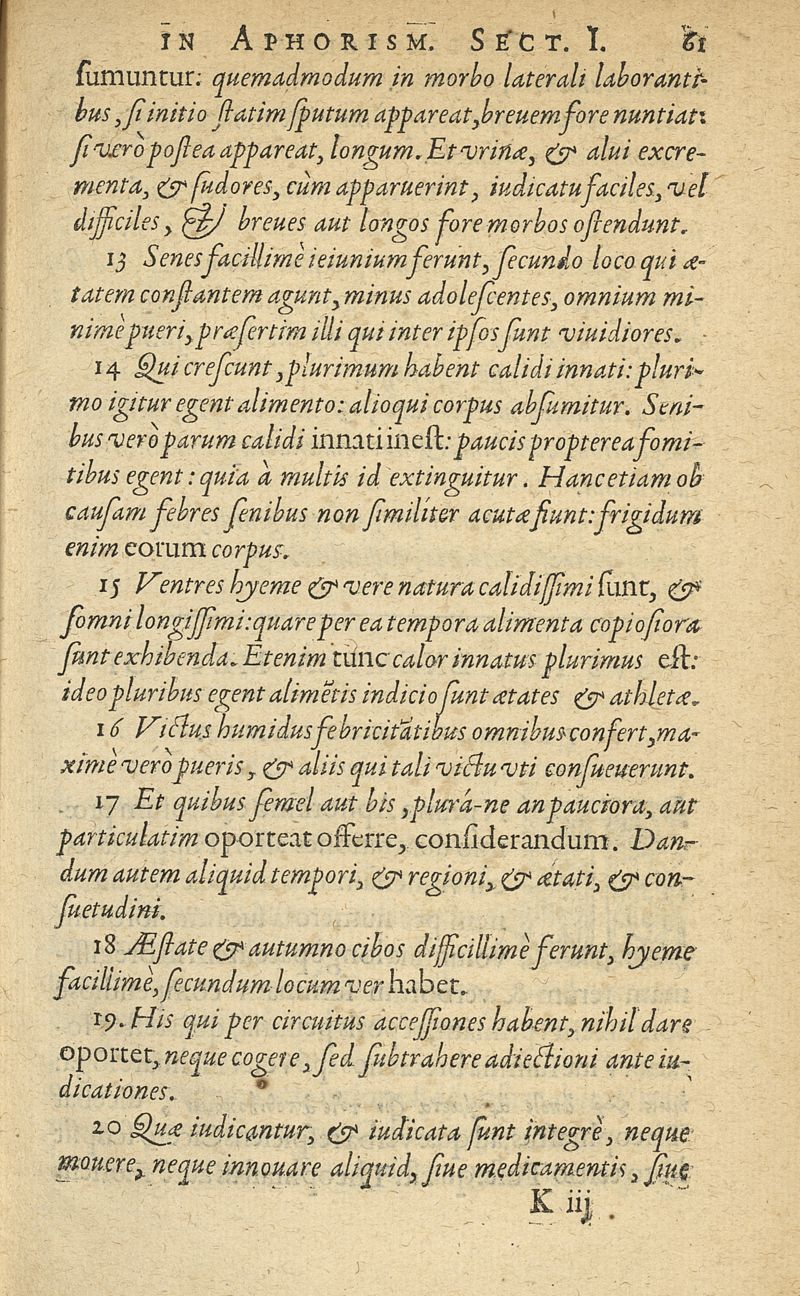 IN APHORISM. SECT. I. 81
ſumuntur: quemadmodum in morbo laterali laboranti-
bus, ſi initio ſtatim ſputum appareat, breuem fore nuntiat:
ſi verò poſtea appareat, longum. Et vrinæ, & alui excre-
menta, & ſudores, cùm apparuerint, iudicatu faciles, vel
difficiles, & breues aut longos fore morbos oſtendunt.
13 Senes facillimè ieiunium ferunt, ſecundo loco qui æ-
tatem conſtantem agunt, minus adoleſcentes, omnium mi-
nimè pueri, præſertim illi qui inter ipſos ſunt viuidiores.
14 Qui creſcunt, plurimum habent calidi innati: pluri-
mo igitur egent alimento: alioqui corpus abſumitur. Seni-
bus verò parum calidi innati ineſt: paucis propterea fomi-
tibus egent: quia à multis id extinguitur. Hanc etiam ob
cauſam febres ſenibus non ſimiliter acutæ fiunt: frigidum
enim eorum corpus.
15 Ventres hyeme & vere natura calidiſſimi ſunt, &
ſomni longiſſimi: quare per ea tempora alimenta copioſiora
ſunt exhibenda. Etenim tunc calor innatus plurimus eſt:
ideo pluribus egent alimētis indicio ſunt ætates & athletæ.
16 Victus humidus febricitātibus omnibus confert, ma-
ximè verò pueris, & aliis qui tali victu vti conſueuerunt.
17 Et quibus ſemel aut bis, plurá-ne an pauciora, aut
particulatim oporteat offerre, conſiderandum. Dan-
dum autem aliquid tempori, & regioni, & ætati, & con-
ſuetudini.
18 Æſtate & autumno cibos difficillimè ferunt, hyeme
facillimè, ſecundum locum ver habet.
19. His qui per circuitus acceſſiones habent, nihil dare
oportet, neque cogere, ſed ſubtrahere adiectioni ante iu-
dicationes.
20 Quæ iudicantur, & iudicata ſunt integrè, neque
mouere, neque innouare aliquid, ſiue medicamentis, ſiue
K iij